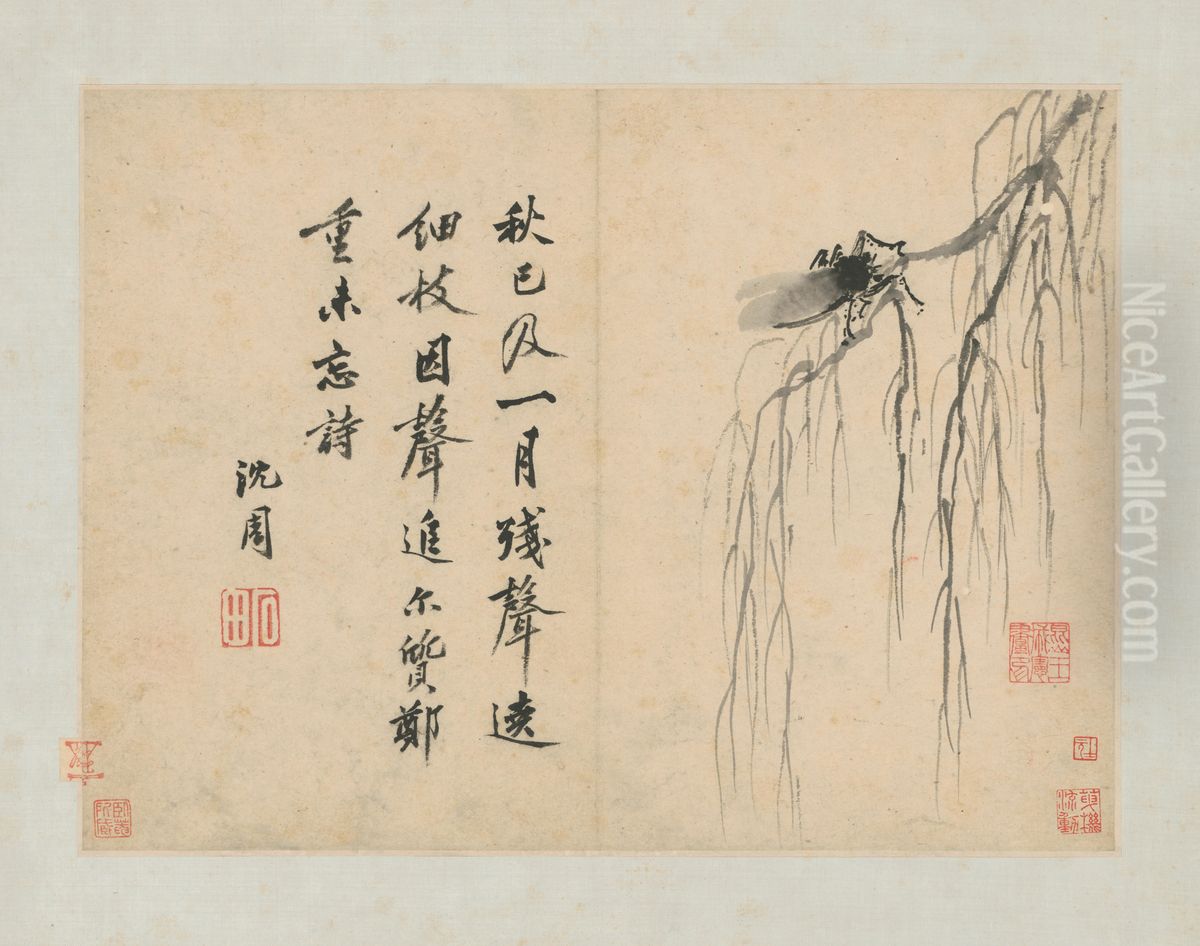 秋已及一月殘聲遶
細枝因聲進尒質鄭
重未忘詩
沈周
石田
NiceArtGallery.com